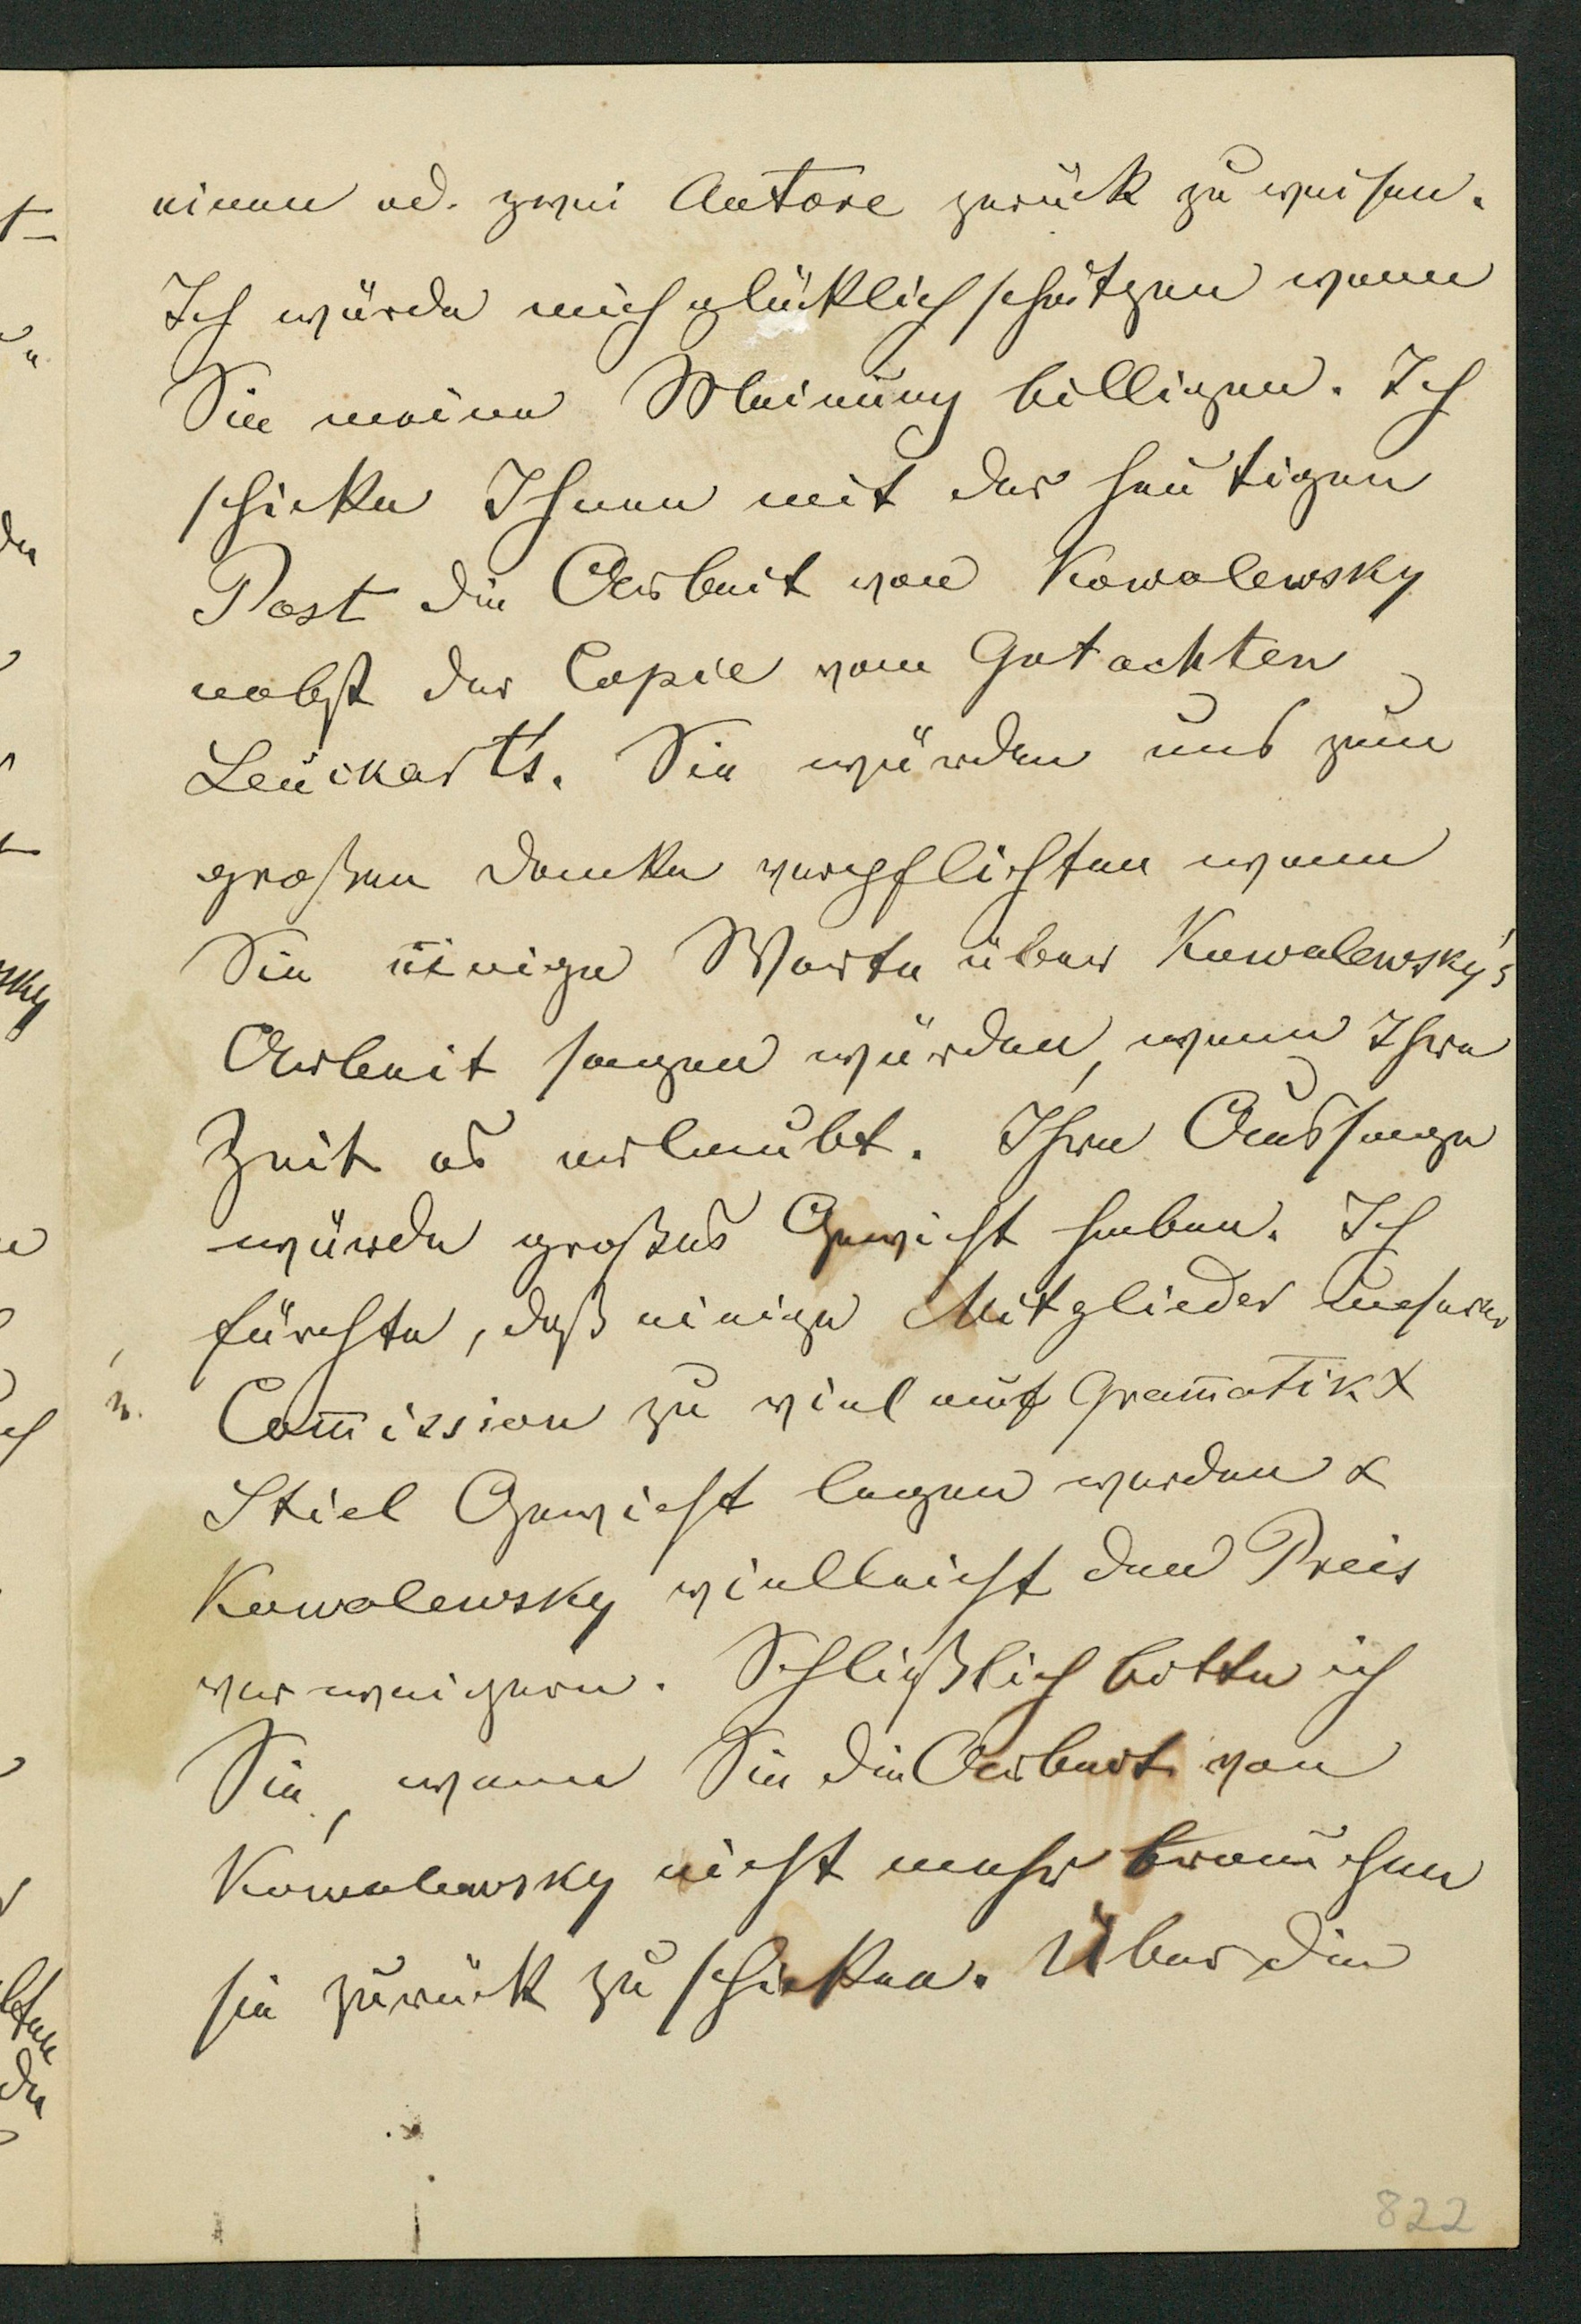 einen od. zwei Autore zurück zu weisen.
Ich würde mich glücklich schätzen wenn
Sie meine Meinung billigen. Ich
schicke Ihnen mit der heutigen
Post die Arbeit von Kowalewsky
nebst der Copie vom Gutachten
Leuckart's. Sie würden uns zum
großen Danke verpflichten wenn
Sie einige Worte über Kowalewsky's
Arbeit sagen würden, wenn Ihre
Zeit es erlaubt. Ihre Aussage
würde großes Gewicht haben. Ich
fürchte, daß einige Mitglieder unserer
Com̄ission zu viel auf Gram̄atik &
Stiel Gewicht legen werden &
Kowalewsky vielleicht den Preis
verweigern. Schließlich bitte ich
Sie, wenn Sie die Arbeit von
Kowalewsky nicht mehr brauchen
sie zurück zu schicken. Über die
822